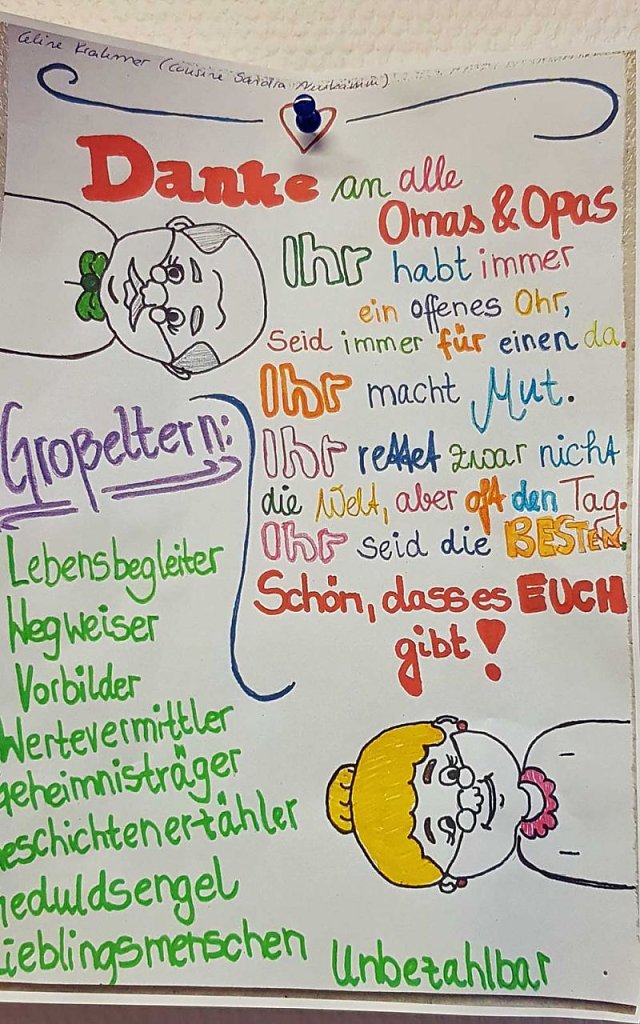 Celine Krahmer (Cousine Sandra
Danke an alle
Omas & Opas
Ihr habt immer
ein offenes Ohr,
seid immer für einen da.
Ihr macht Mut.
Ihr rettet zwar nicht
die Welt, aber oft den Tag.
Ihr seid die BESTEN.
Schön, dass es EUCH
gibt!
Großeltern:
Lebensbegleiter
Wegweiser
Vorbilder
Wertevermittler
Geheimnisträger
Geschichtenerzähler
Geduldsengel
Lieblingsmenschen
Unbezahlbar